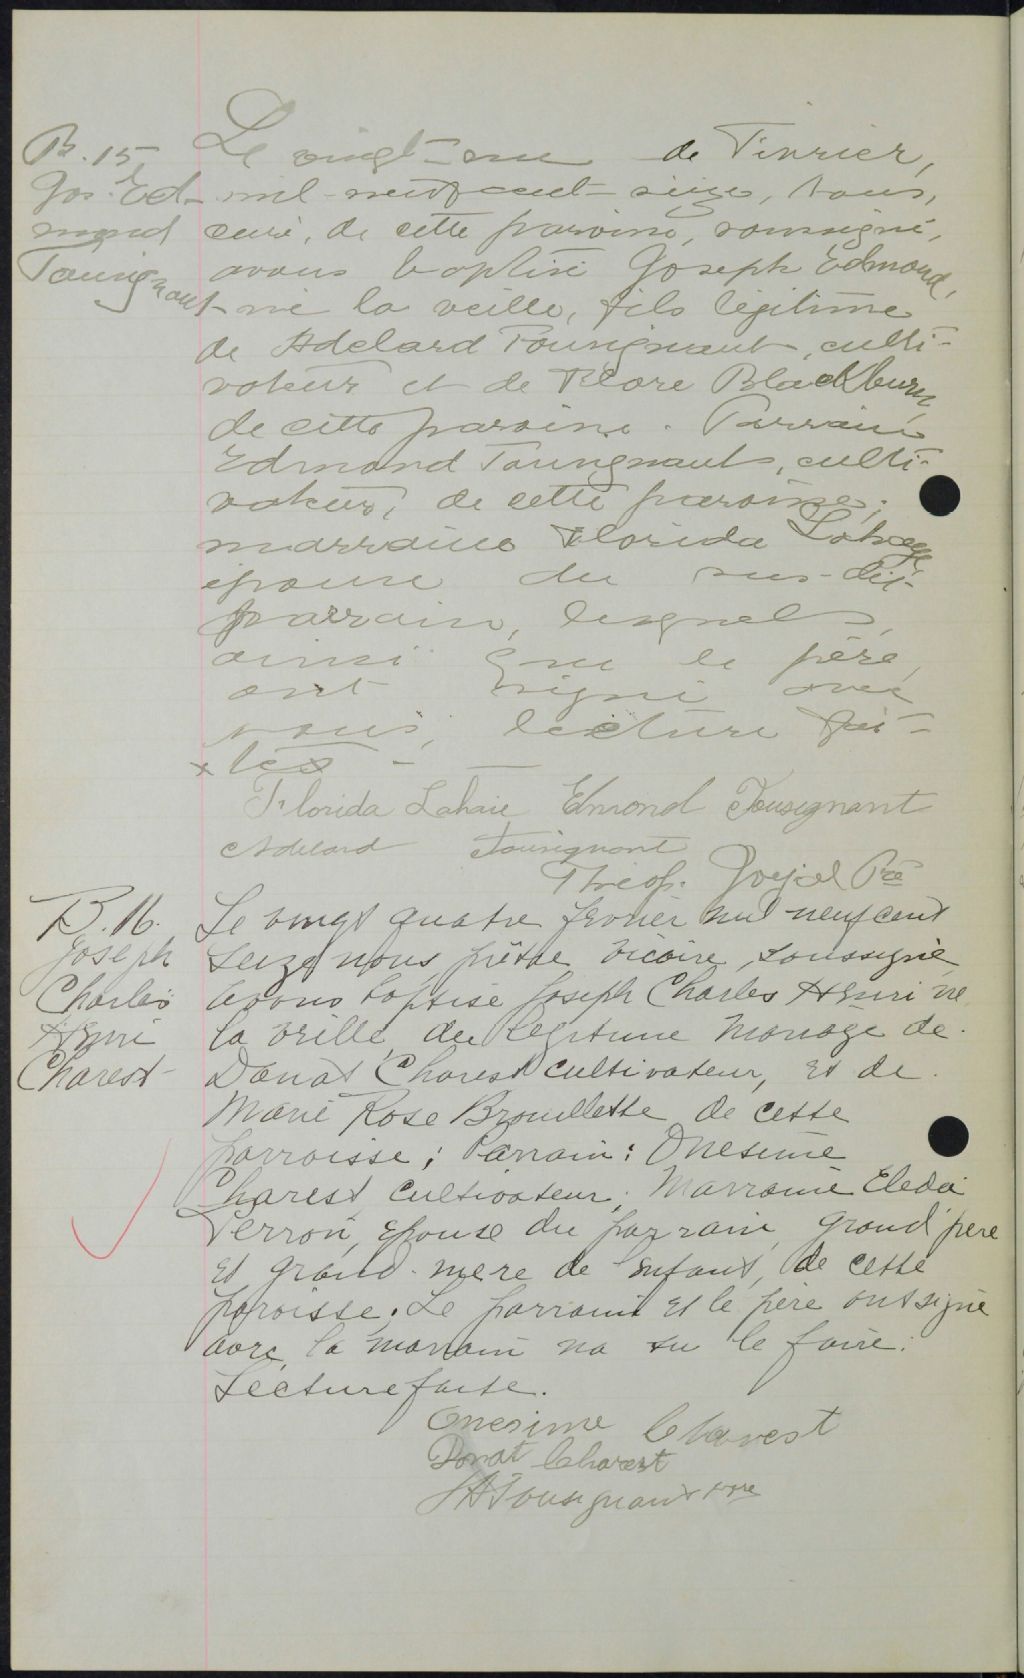 B. 15
Jos. Ed-
mond
Tousignant
Le vingt-un de Février,
mil neuf cent seize, nous,
curé, de cette paroisse, soussigné,
avons baptisé Joseph Edmond,
né la veille, fils légitime
de Adelard Tousignant, culti-
vateur et de Flore Blackburn
de cette paroisse. Parrain
Edmond Tousignant, culti-
vateur, de cette paroisse;
marraine Florida Lahaye
épouse du sus-dit
parrain, lesquels
ainsi que le père,
ont signé avec
nous, lecture fai-
x tes -
Florida Lahaie Edmond Tousignant
Adelard Tousignant
Théop. Joyal Ptre
B. 16.
Joseph
Charles
Henri
Charest
Le vingt quatre fevrier mil neuf cent
seize nous prêtre vicaire, soussigné
avons baptisé Joseph Charles Henri né
la veille, du legitime mariage de
Donat Charest cultivateur, et de
Marie Rose Brouillette de cette
parroisse; Parrain: Onesime
Charest cultivateur; Marraine Eleda
Perron, epouse du parrain, grand pere
et grand-mere de l'enfant, de cette
paroisse. Le parrain et le père ont signé
avec, la marrain na su le faire.
Lecture faite.
Onesime Charest
Donat Charest
JA Tousignant ptre